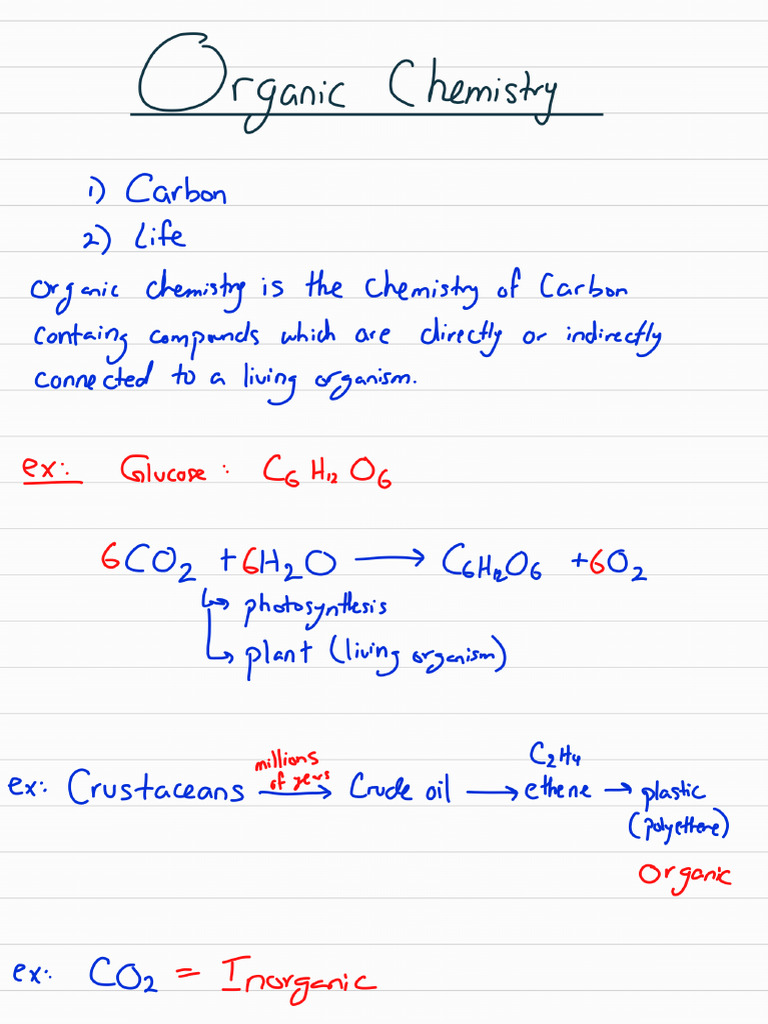 Organic Chemistry
1) Carbon
2) Life
Organic chemistry is the Chemistry of Carbon
Containg compounds which are directly or indirectly
connected to a living organism.
ex: Glucose: C6H12O6
6CO2 + 6H2O → C6H12O6 + 6O2
↳ photosynthesis
↳ plant (living organism)
C2H4
millions
of years
ex: Crustaceans → Crude oil → ethene → plastic
(polyethene)
Organic
ex: CO2 = Inorganic